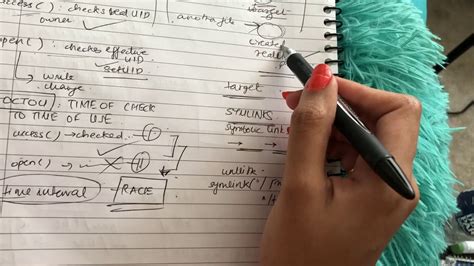 access() : checks real UID
owner
open() : checks effective
UID
SetUID
write
change
TOCTOU : TIME OF CHECK
TO TIME OF USE
access() → checked. I
open() → II
time interval
RACE
another file
target
create
target
SYMLINKS
symbolic link
unlink.
symlink("/